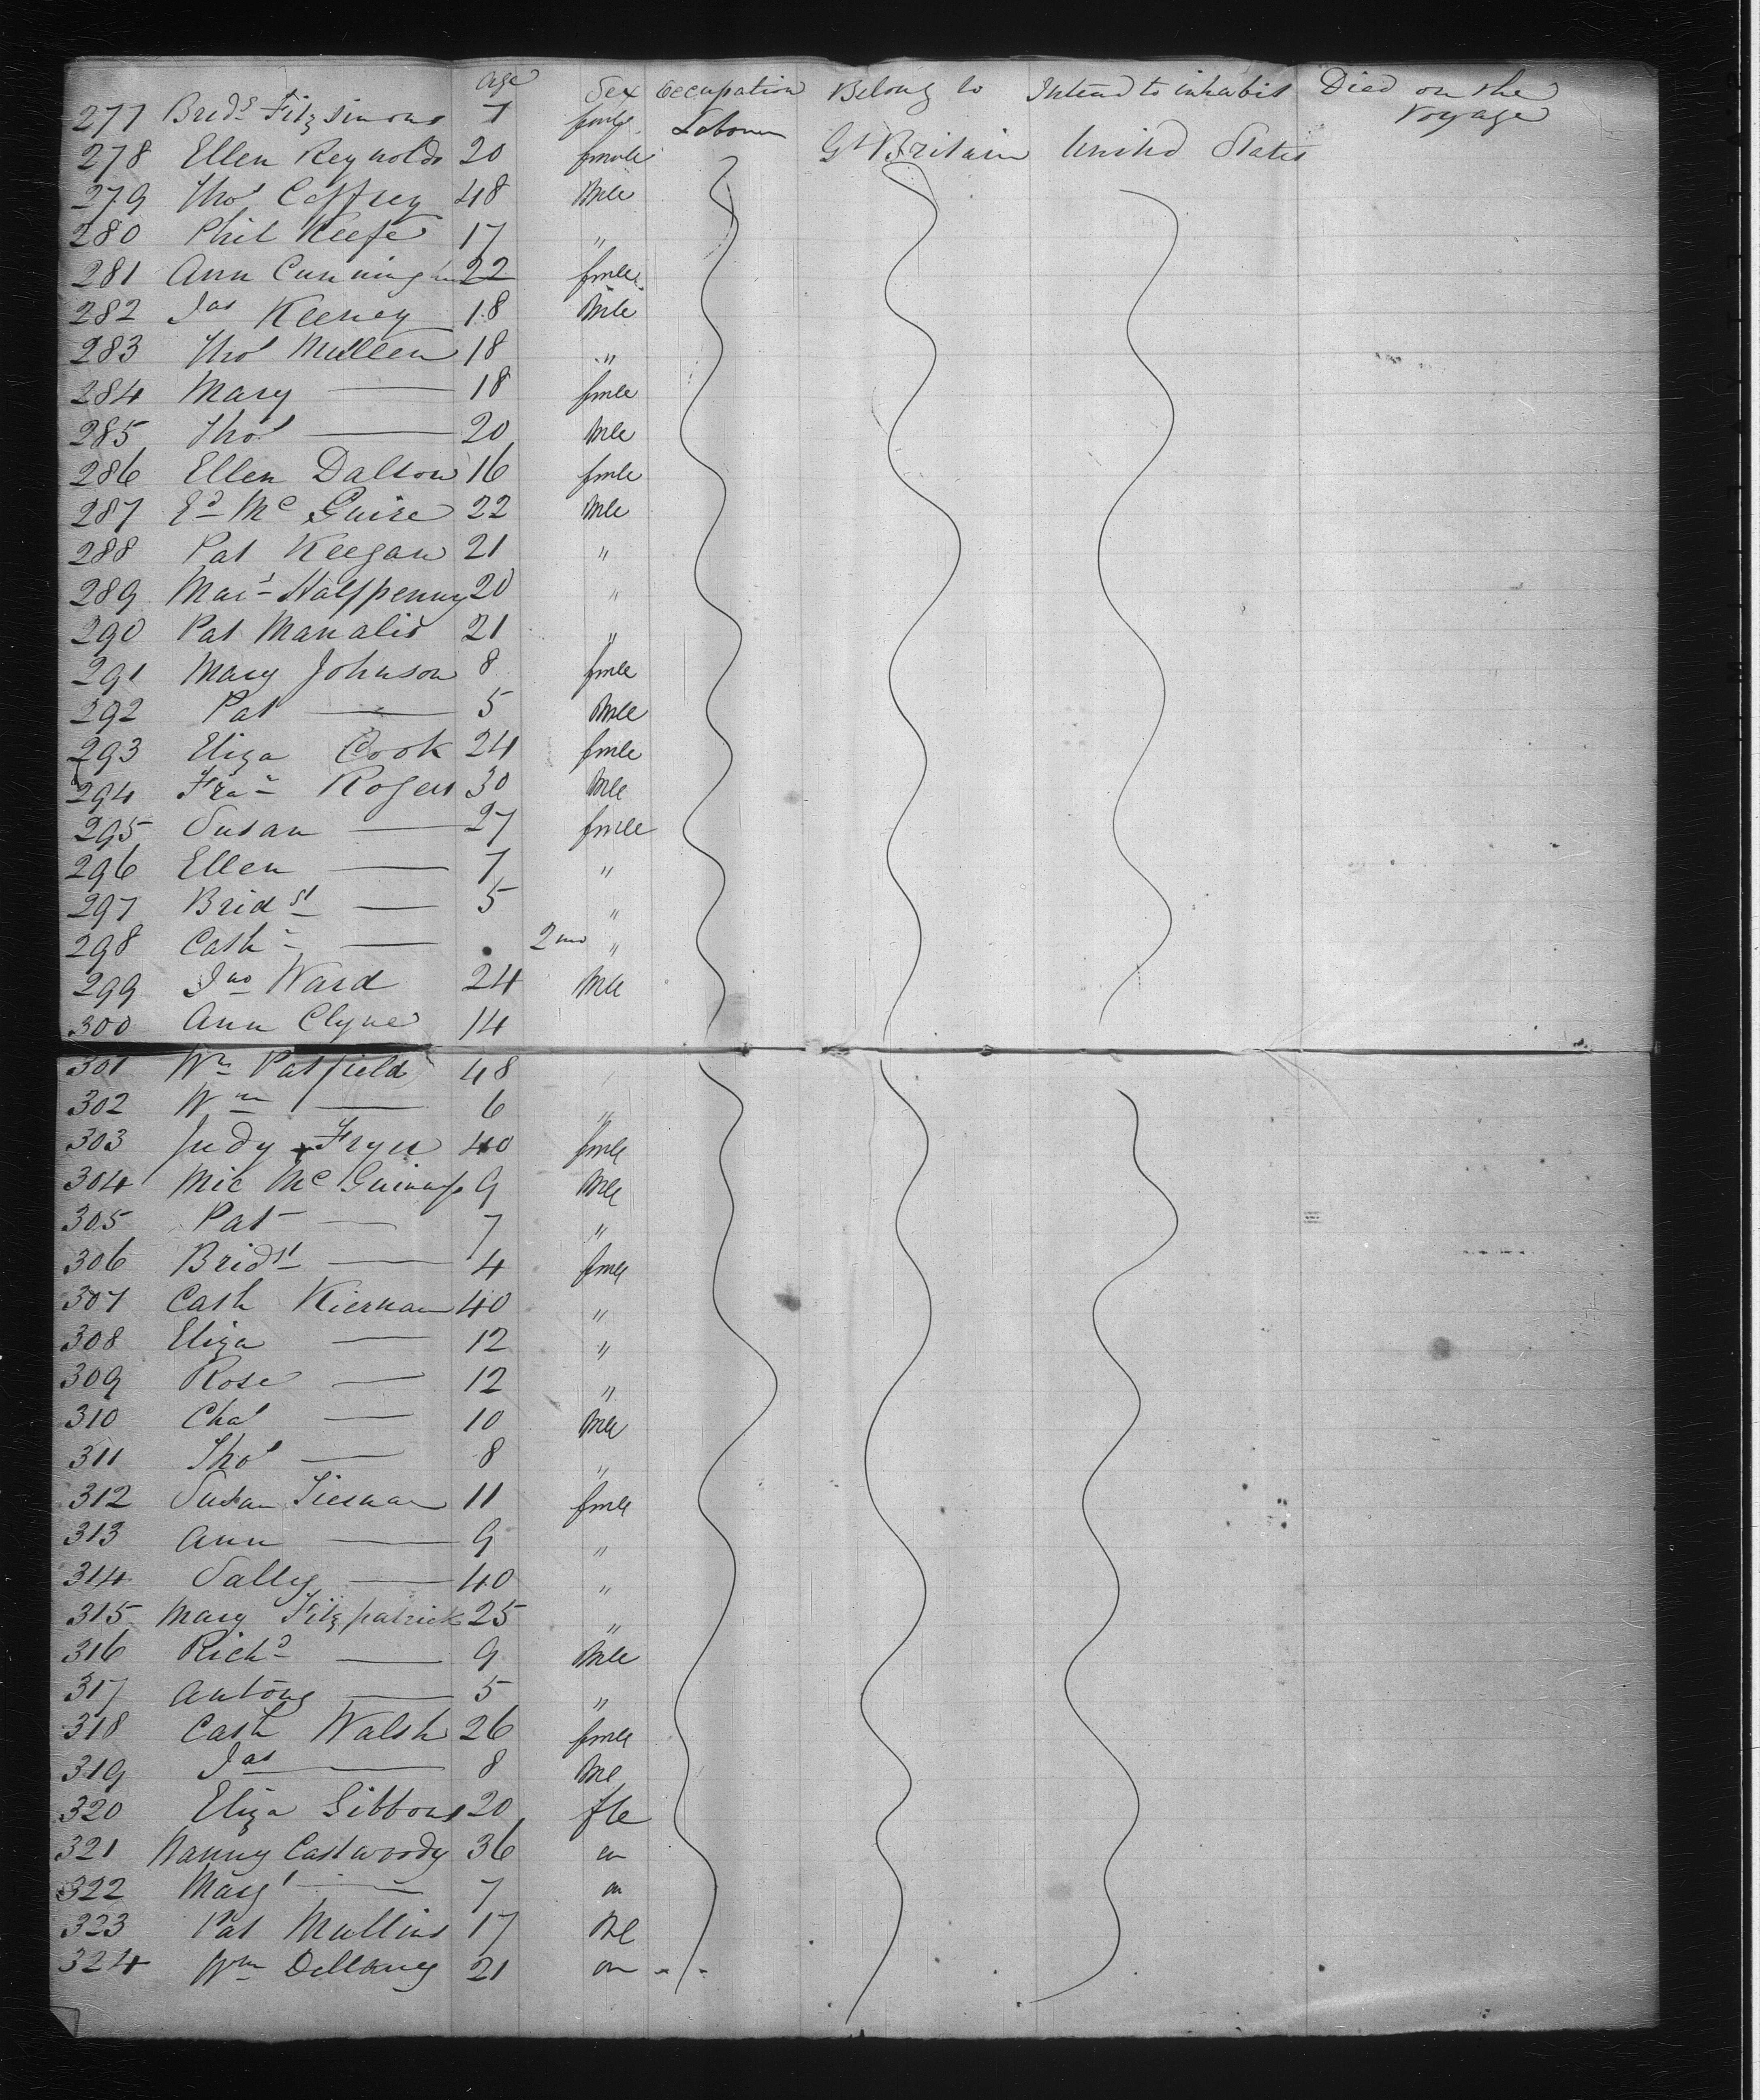 Age Sex Occupation Belong to Intend to inhabit Died on the voyage
277 Brid.t Fitzsimons 7 fmle Labourer
278 Ellen Reynolds 20 fmale Gt Britain United States
279 Thos Caffrey 48 Mle
280 Phil Keefe 17 "
281 Ann Cunningh 22 fmle
282 Jas Keeney 18 Mle
283 Thos Mullen 18 "
284 Mary — 18 fmle
285 Thos — 20 Mle
286 Ellen Dalton 16 fmle
287 Ed Mc Guire 22 Mle
288 Pat Keegan 21 "
289 Mart Halfpenny 20 "
290 Pat Manalis 21 "
291 Mary Johnson 8 fmle
292 Pat — 5 Mle
293 Eliza Cook 24 fmle
294 Fras Rogers 30 Mle
295 Susan — 27 fmle
296 Ellen — 7 "
297 Bridgt — 5 "
298 Cath — 2 mo "
299 Jno Ward 24 Mle
300 Ann Clyne 14
301 Wm Patfield 48
302 Wm — 6 "
303 Judy Fryer 40 fmle
304 Mic Mc Guiness 9 Mle
305 Pat — 7 "
306 Bridgt — 4 fmle
307 Cath Kiernan 40 "
308 Eliza — 12 "
309 Rose — 12 "
310 Chas — 10 Mle
311 Thos — 8 "
312 Susan Tiernan 11 fmle
313 Ann — 9 "
314 Sally — 40 "
315 Mary Fitzpatrick 25 "
316 Richd — 9 Mle
317 Antony — 5 "
318 Cath Walsh 26 fmle
319 Jas — 8 Ml
320 Eliza Gibbons 20 fle
321 Nanny Castwoody 36 "
322 Margt — 7 "
323 Pat Mullins 17 Ml
324 Wm Dellaney 21 "